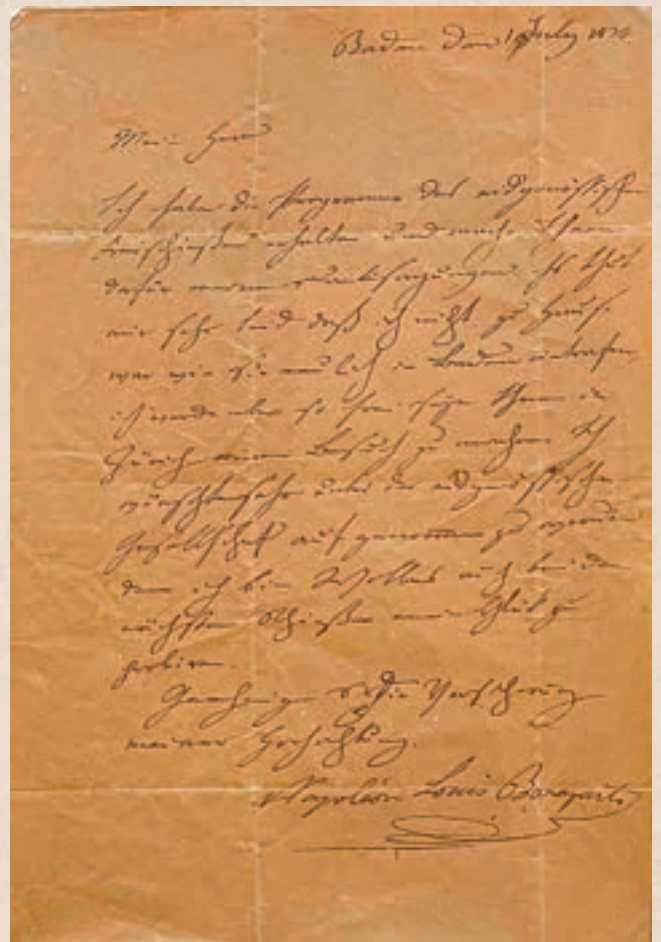 Baden den 1 July 1834.
Mein Herr
Ich habe die Programme des eidgenössischen
Freischießen erhalten und mache Ihnen
dafür meine Danksagungen. Es thut
mir sehr leid daß ich nicht zu Hause
war wie Sie neulich in Baden eintrafen
ich werde aber so frei sein Ihnen in
Zürich meinen Besuch zu machen. Ich
wünschte sehr unter die eidgenössische
Gesellschaft aufgenommen zu werden
denn ich bin Willens auch bei dem
nächsten Schießen mein Glück zu
probiren.
Genehmigen Sie die Versicherung
meiner Hochachtung.
Napoléon Louis Bonaparte